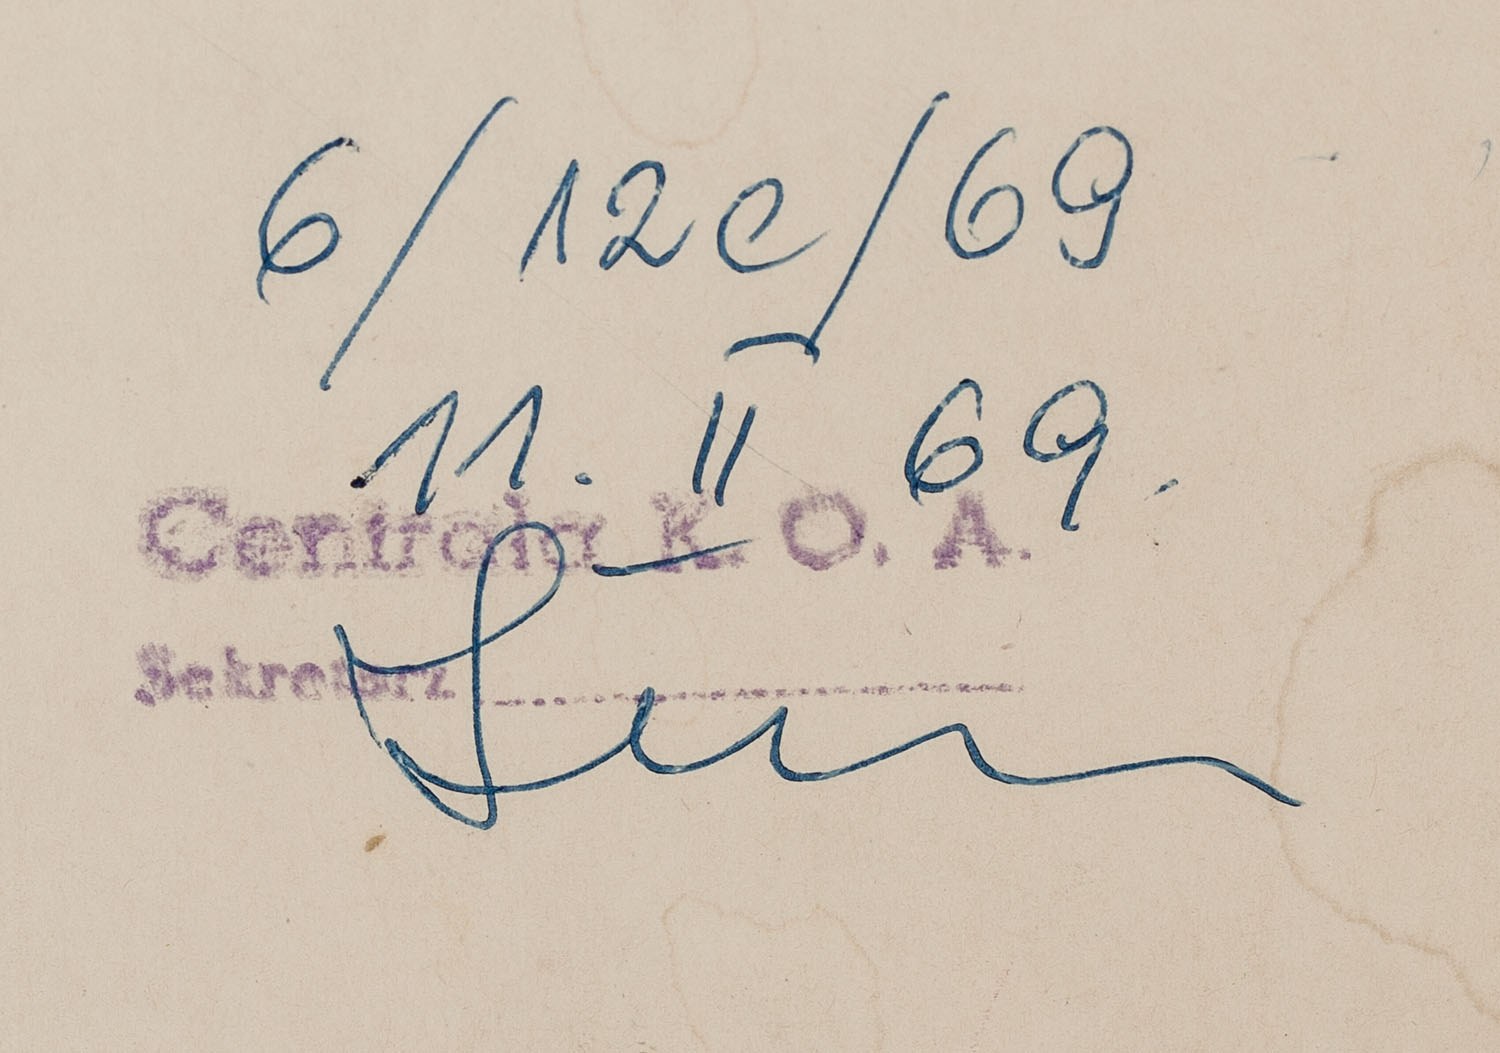 6/12c/69
11. II 69.
Centrala K. O. A.
Sekretarz